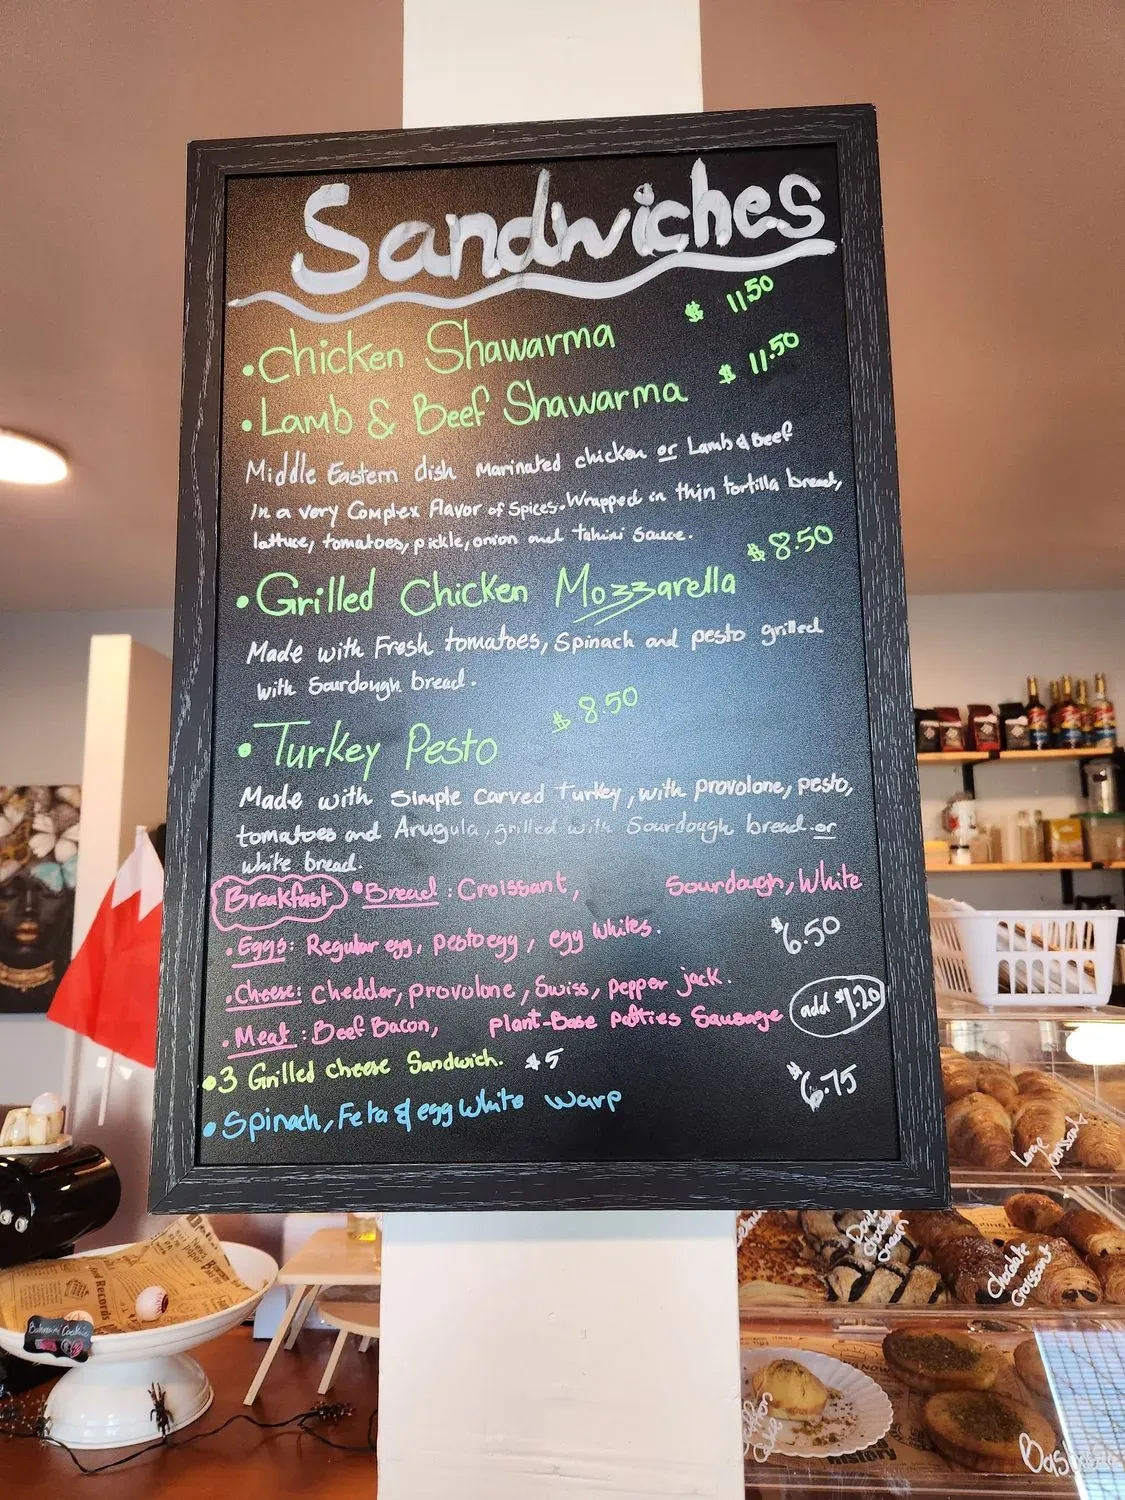 Sandwiches
• Chicken Shawarma $ 11.50
• Lamb & Beef Shawarma $ 11.50
Middle Eastern dish Marinated chicken or Lamb & Beef
in a very Complex Flavor of Spices. Wrapped in thin tortilla bread,
lattuce, tomatoes, pickle, onion and Tahini Sauce.
• Grilled Chicken Mozzarella $8.50
Made with Fresh tomatoes, Spinach and pesto grilled
with Sourdough bread.
• Turkey Pesto $ 8.50
Made with Simple Carved Turkey, with provolone, pesto,
tomatoes and Arugula, grilled with Sourdough bread or
white bread.
Breakfast • Bread : Croissant, Sourdough, White
• Eggs: Regular egg, pesto egg, egg whites. $6.50
• Cheese: Cheddar, provolone, Swiss, pepper jack.
• Meat : Beef Bacon, plant-Base patties Sausage add $1.20
• 3 Grilled cheese Sandwich. $5
• Spinach, Feta & egg White warp $6.75
Large
Chocolate
Croissant
Records